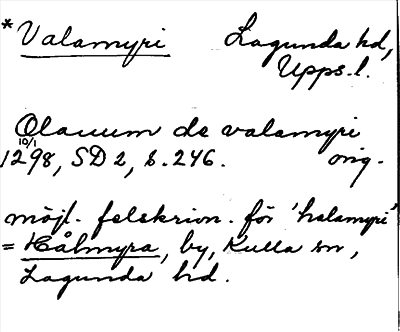 *Valamyri Lagunda hd,
Upps.l.
Olauum de valamyri
10/1
1298, SD 2, s. 246. orig.
möjl. felskrivn. för 'halamyri'
= Hålmyra, by, Kulla sn,
Lagunda hd.